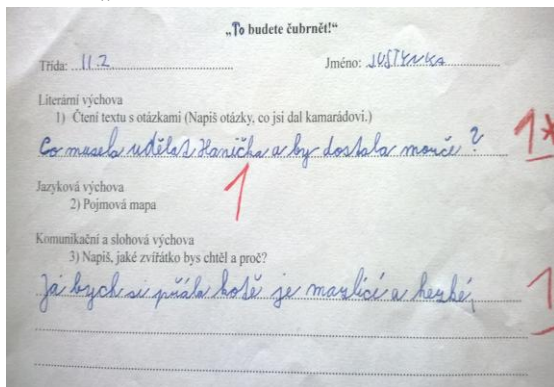 „To budete čubrnět!“
Třída: II.2 Jméno: JUSTYNKA
Literární výchova
1) Čtení textu s otázkami (Napiš otázky, co jsi dal kamarádovi.)
Co musela udělat Hanička a by dostala morče? 1*
Jazyková výchova
2) Pojmová mapa 1
Komunikační a slohová výchova
3) Napiš, jaké zvířátko bys chtěl a proč?
Já bych si přála kotě je mazlící a hezké, 1